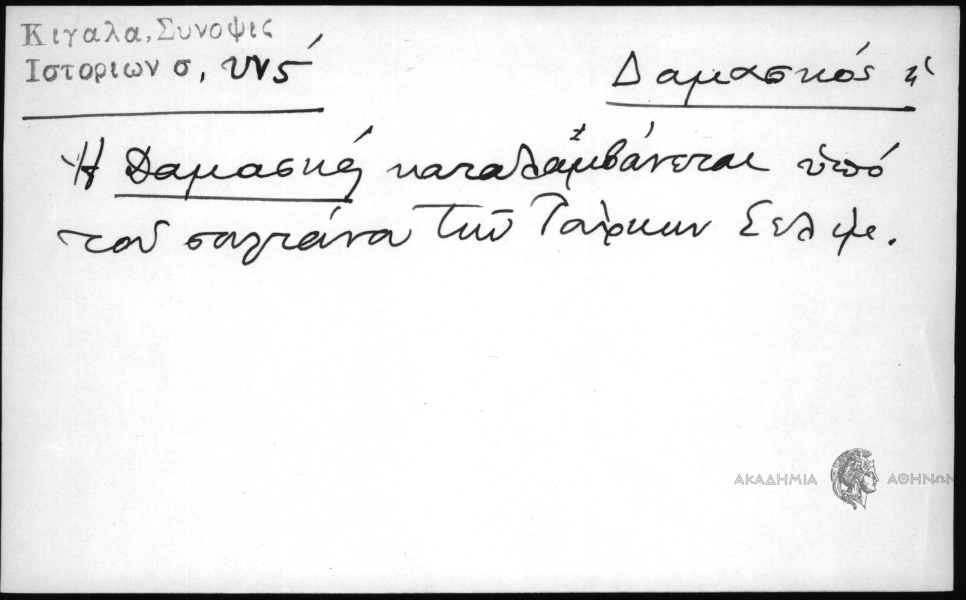 Κιγαλα, Συνοψις
Ιστοριων σ, υνς΄
Δαμασκός ἡ
Ἡ Δαμασκός καταλαμβάνεται ὑπό
τοῦ σουλτάνου τῶν Τούρκων Σελίμ.
ΑΚΑΔΗΜΙΑ ΑΘΗΝΩΝ